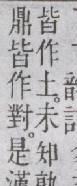 皆作土。未知孰
鼎皆作對。是漢